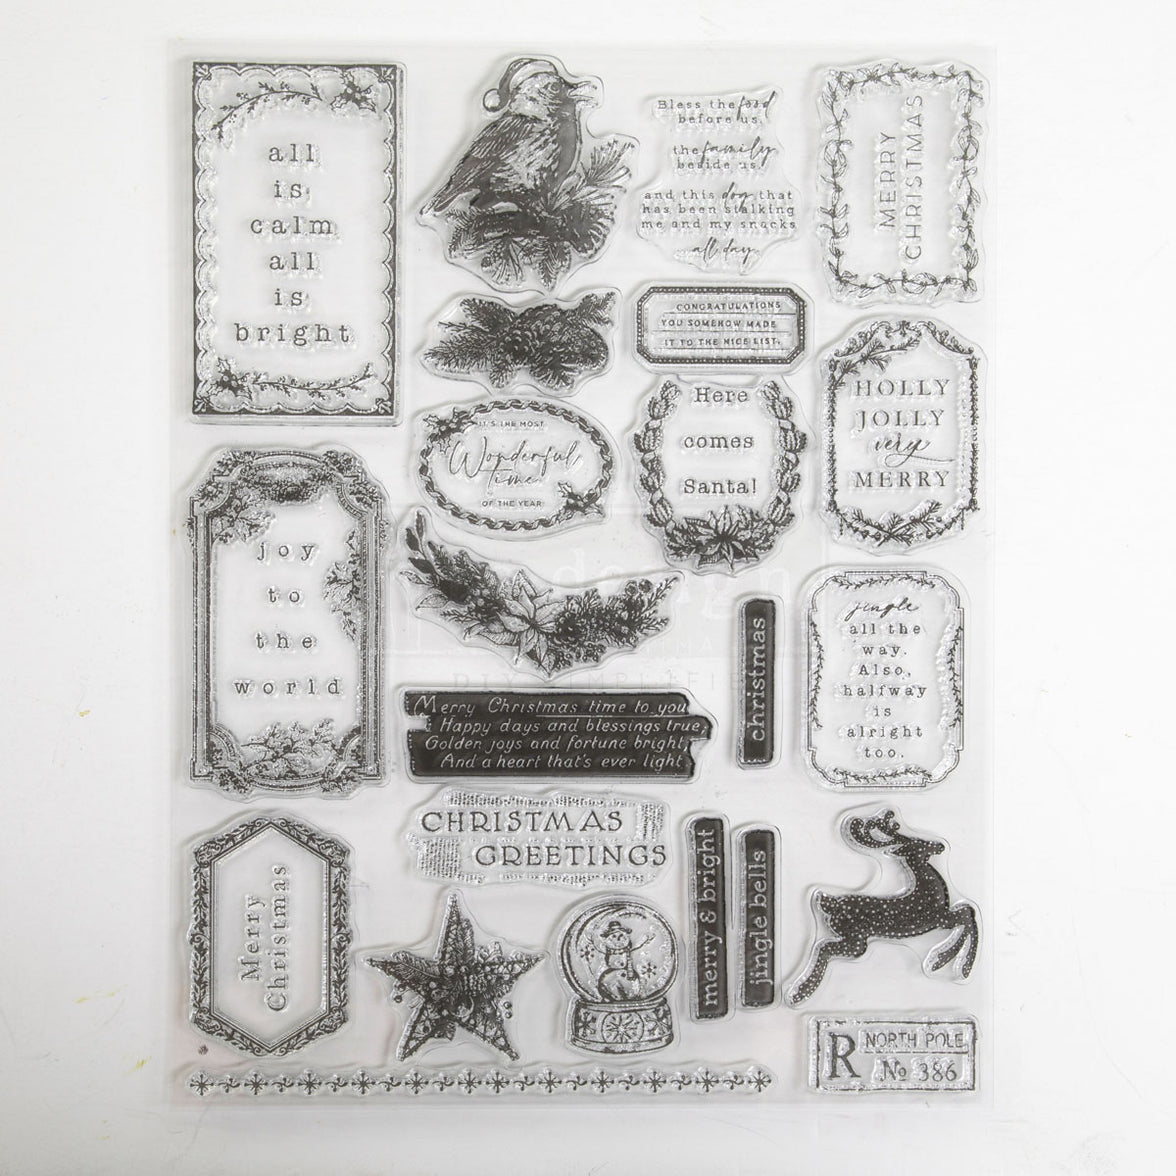 all
is
calm
all
is
bright
Bless the food
before us,
the family
beside us,
and this dog that
has been stalking
me and my snacks
all day.
MERRY
CHRISTMAS
CONGRATULATIONS
YOU SOMEHOW MADE
IT TO THE NICE LIST.
Here
comes
Santa!
HOLLY
JOLLY
very
MERRY
IT'S THE MOST
Wonderful
Time
OF THE YEAR
joy
to
the
world
jingle
all the
way.
Also,
halfway
is
alright
too.
christmas
Merry Christmas time to you
Happy days and blessings true,
Golden joys and fortune bright,
And a heart that's ever light
CHRISTMAS
GREETINGS
Merry
Christmas
merry & bright
jingle bells
R
NORTH POLE
No 386